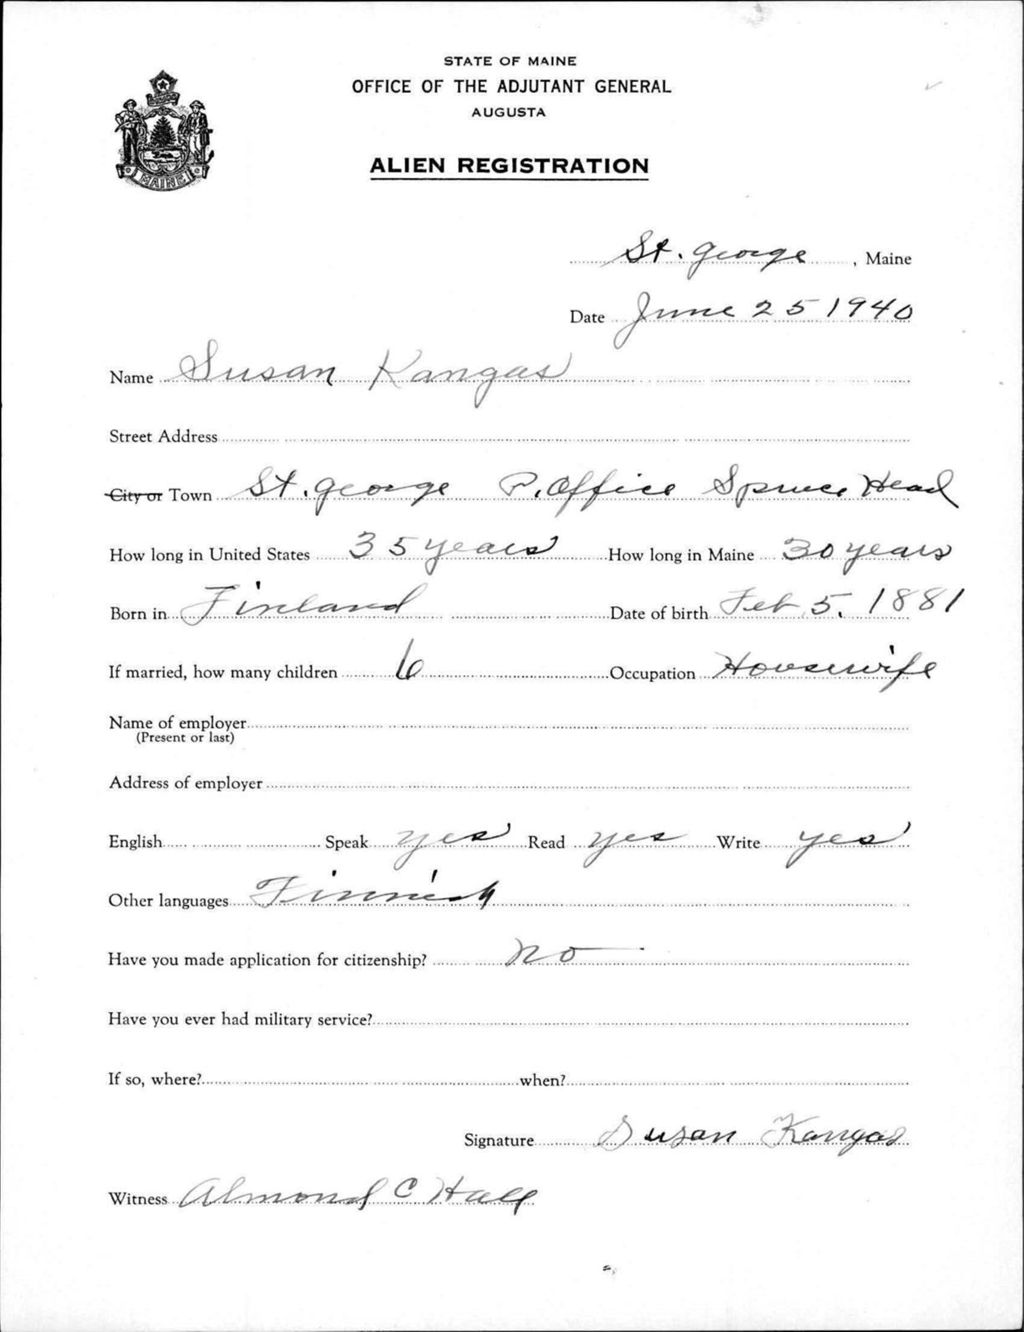 STATE OF MAINE
OFFICE OF THE ADJUTANT GENERAL
AUGUSTA
ALIEN REGISTRATION
MAINE
St. George, Maine
Date June 25 1940
Name Susan Kangas
Street Address
City or Town St. George P. Office Spruce Head
How long in United States 35 years How long in Maine 30 years
Born in Finland Date of birth Feb 5, 1881
If married, how many children 6 Occupation Housewife
Name of employer
(Present or last)
Address of employer
English Speak yes Read yes Write yes
Other languages Finnish
Have you made application for citizenship? no
Have you ever had military service?
If so, where? when?
Signature Susan Kangas
Witness Almond C Hall